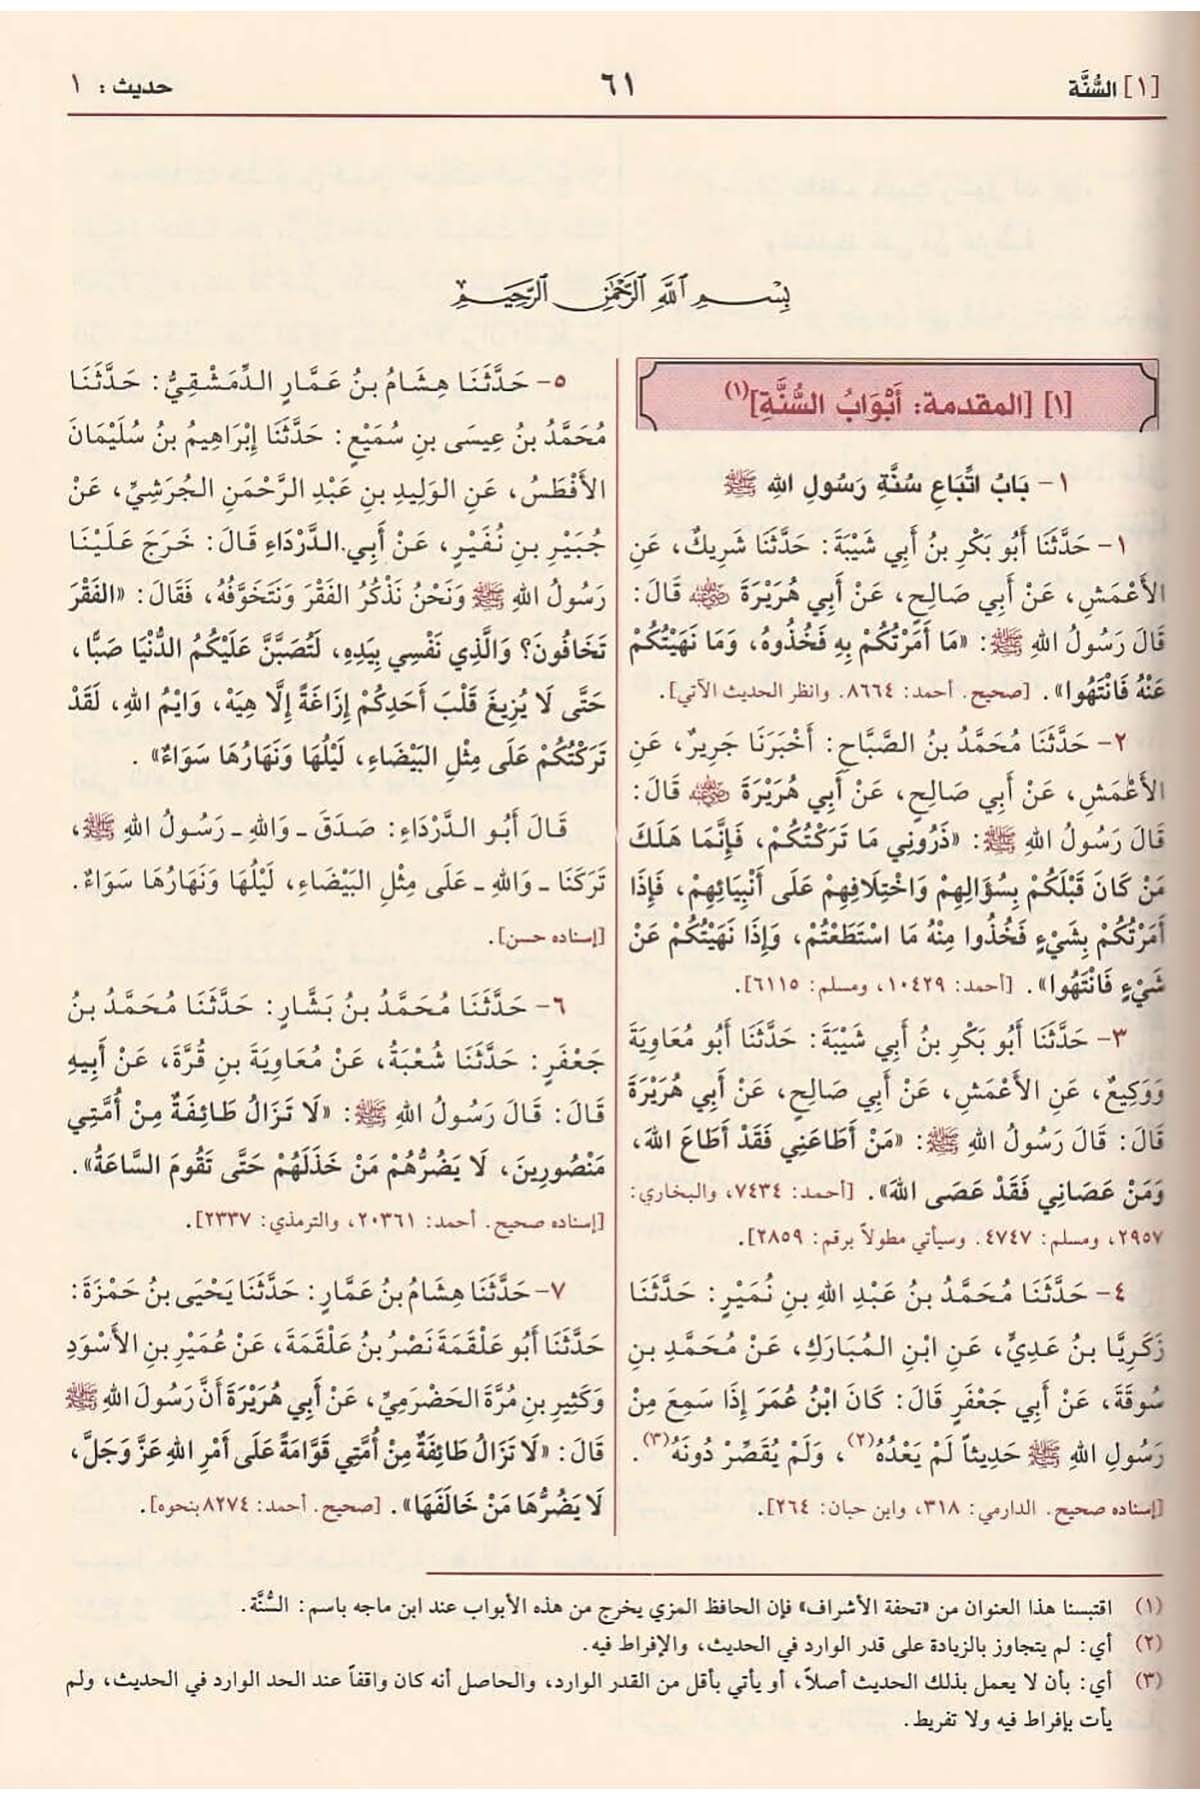 [١] السُّنَّة
٦١
حديث: ١
بِسْمِ اللَّهِ الرَّحْمَٰنِ الرَّحِيمِ
[١] [المقدمة: أَبْوَابُ السُّنَّةِ](١)
١- بَابُ اتِّبَاعِ سُنَّةِ رَسُولِ اللهِ ﷺ
١- حَدَّثَنَا أَبُو بَكْرِ بنُ أَبِي شَيْبَةَ: حَدَّثَنَا شَرِيكٌ، عَنِ
الأَعْمَشِ، عَنْ أَبِي صَالِحٍ، عَنْ أَبِي هُرَيْرَةَ رضي الله عنه قَالَ:
قَالَ رَسُولُ اللهِ ﷺ: «مَا أَمَرْتُكُمْ بِهِ فَخُذُوهُ، وَمَا نَهَيْتُكُمْ
عَنْهُ فَانْتَهُوا». [صحيح. أحمد: ٨٦٦٤. وانظر الحديث الآتي].
٢- حَدَّثَنَا مُحَمَّدُ بنُ الصَّبَّاحِ: أَخْبَرَنَا جَرِيرٌ، عَنِ
الأَعْمَشِ، عَنْ أَبِي صَالِحٍ، عَنْ أَبِي هُرَيْرَةَ رضي الله عنه قَالَ:
قَالَ رَسُولُ اللهِ ﷺ: «ذَرُونِي مَا تَرَكْتُكُمْ، فَإِنَّمَا هَلَكَ
مَنْ كَانَ قَبْلَكُمْ بِسُؤَالِهِمْ وَاخْتِلَافِهِمْ عَلَى أَنْبِيَائِهِمْ، فَإِذَا
أَمَرْتُكُمْ بِشَيْءٍ فَخُذُوا مِنْهُ مَا اسْتَطَعْتُمْ، وَإِذَا نَهَيْتُكُمْ عَنْ
شَيْءٍ فَانْتَهُوا». [أحمد: ١٠٤٢٩، ومسلم: ٦١١٥].
٣- حَدَّثَنَا أَبُو بَكْرِ بنُ أَبِي شَيْبَةَ: حَدَّثَنَا أَبُو مُعَاوِيَةَ
وَوَكِيعٌ، عَنِ الأَعْمَشِ، عَنْ أَبِي صَالِحٍ، عَنْ أَبِي هُرَيْرَةَ
قَالَ: قَالَ رَسُولُ اللهِ ﷺ: «مَنْ أَطَاعَنِي فَقَدْ أَطَاعَ اللهَ،
وَمَنْ عَصَانِي فَقَدْ عَصَى اللهَ». [أحمد: ٧٤٣٤، والبخاري:
٢٩٥٧، ومسلم: ٤٧٤٧. وسيأتي مطولاً برقم: ٢٨٥٩].
٤- حَدَّثَنَا مُحَمَّدُ بنُ عَبْدِ اللهِ بنِ نُمَيْرٍ: حَدَّثَنَا
زَكَرِيَّا بنُ عَدِيٍّ، عَنِ ابْنِ المُبَارَكِ، عَنْ مُحَمَّدِ بنِ
سُوقَةَ، عَنْ أَبِي جَعْفَرٍ قَالَ: كَانَ ابْنُ عُمَرَ إِذَا سَمِعَ مِنْ
رَسُولِ اللهِ ﷺ حَدِيثاً لَمْ يَعْدُهُ(٢)، وَلَمْ يُقَصِّرْ دُونَهُ(٣).
[إسناده صحيح. الدارمي: ٣١٨، وابن حبان: ٢٦٤].
٥- حَدَّثَنَا هِشَامُ بنُ عَمَّارٍ الدِّمَشْقِيُّ: حَدَّثَنَا
مُحَمَّدُ بنُ عِيسَى بنِ سُمَيْعٍ: حَدَّثَنَا إِبْرَاهِيمُ بنُ سُلَيْمَانَ
الأَفْطَسُ، عَنِ الوَلِيدِ بنِ عَبْدِ الرَّحْمَنِ الجُرَشِيِّ، عَنْ
جُبَيْرِ بنِ نُفَيْرٍ، عَنْ أَبِي الدَّرْدَاءِ قَالَ: خَرَجَ عَلَيْنَا
رَسُولُ اللهِ ﷺ وَنَحْنُ نَذْكُرُ الفَقْرَ وَنَتَخَوَّفُهُ، فَقَالَ: «الفَقْرَ
تَخَافُونَ؟ وَالَّذِي نَفْسِي بِيَدِهِ، لَتُصَبَّنَّ عَلَيْكُمُ الدُّنْيَا صَبًّا،
حَتَّى لَا يُزِيغَ قَلْبَ أَحَدِكُمْ إِزَاغَةً إِلَّا هِيَهْ، وَايْمُ اللهِ، لَقَدْ
تَرَكْتُكُمْ عَلَى مِثْلِ البَيْضَاءِ، لَيْلُهَا وَنَهَارُهَا سَوَاءٌ».
قَالَ أَبُو الدَّرْدَاءِ: صَدَقَ ـ وَاللهِ ـ رَسُولُ اللهِ ﷺ،
تَرَكَنَا ـ وَاللهِ ـ عَلَى مِثْلِ البَيْضَاءِ، لَيْلُهَا وَنَهَارُهَا سَوَاءٌ.
[إسناده حسن].
٦- حَدَّثَنَا مُحَمَّدُ بنُ بَشَّارٍ: حَدَّثَنَا مُحَمَّدُ بنُ
جَعْفَرٍ: حَدَّثَنَا شُعْبَةُ، عَنْ مُعَاوِيَةَ بنِ قُرَّةَ، عَنْ أَبِيهِ
قَالَ: قَالَ رَسُولُ اللهِ ﷺ: «لَا تَزَالُ طَائِفَةٌ مِنْ أُمَّتِي
مَنْصُورِينَ، لَا يَضُرُّهُمْ مَنْ خَذَلَهُمْ حَتَّى تَقُومَ السَّاعَةُ».
[إسناده صحيح. أحمد: ٢٠٣٦١، والترمذي: ٢٣٣٧].
٧- حَدَّثَنَا هِشَامُ بنُ عَمَّارٍ: حَدَّثَنَا يَحْيَى بنُ حَمْزَةَ:
حَدَّثَنَا أَبُو عَلْقَمَةَ نَصْرُ بنُ عَلْقَمَةَ، عَنْ عُمَيْرِ بنِ الأَسْوَدِ
وَكَثِيرِ بنِ مُرَّةَ الحَضْرَمِيِّ، عَنْ أَبِي هُرَيْرَةَ أَنَّ رَسُولَ اللهِ ﷺ
قَالَ: «لَا تَزَالُ طَائِفَةٌ مِنْ أُمَّتِي قَوَّامَةً عَلَى أَمْرِ اللهِ عَزَّ وَجَلَّ،
لَا يَضُرُّهَا مَنْ خَالَفَهَا». [صحيح. أحمد: ٨٢٧٤ بنحوه].
(١) اقتبسنا هذا العنوان من «تحفة الأشراف» فإن الحافظ المزي يخرج من هذه الأبواب عند ابن ماجه باسم: السُّنَّة.
(٢) أي: لم يتجاوز بالزيادة على قدر الوارد في الحديث، والإفراط فيه.
(٣) أي: بأن لا يعمل بذلك الحديث أصلاً، أو يأتي بأقل من القدر الوارد، والحاصل أنه كان واقفاً عند الحد الوارد في الحديث، ولم
يأت بإفراط فيه ولا تفريط.